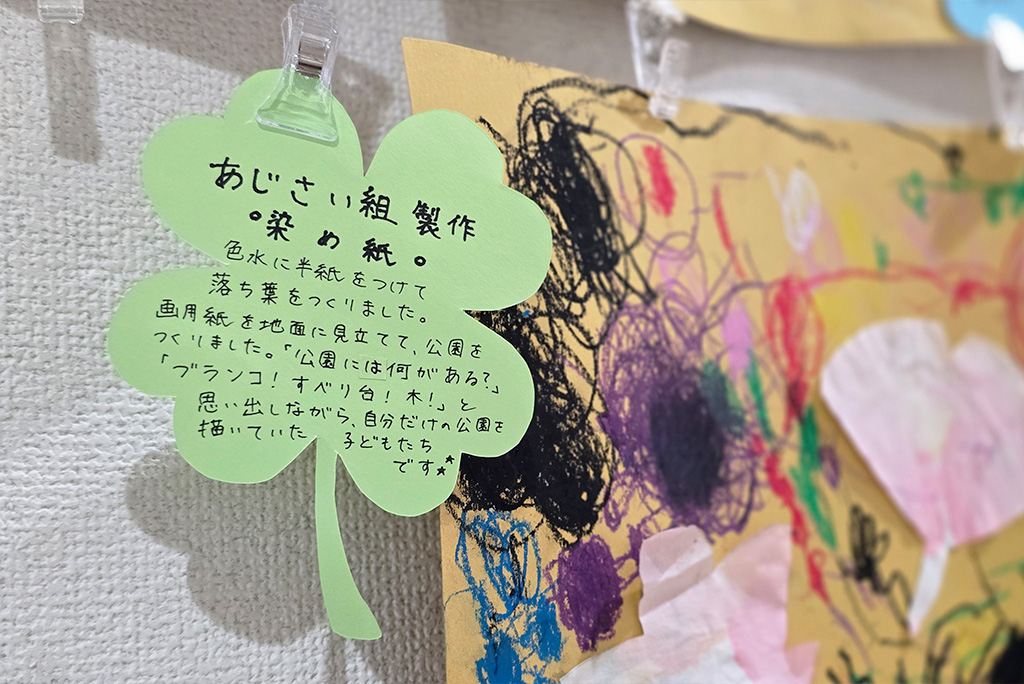 あじさい組 製作
°染め紙。
色水に半紙をつけて
落ち葉をつくりました。
画用紙を地面に見立てて、公園を
つくりました。「公園には何がある?」
「ブランコ！すべり台！木!」と
思い出しながら、自分だけの公園を
描いていた 子どもたち
です★★